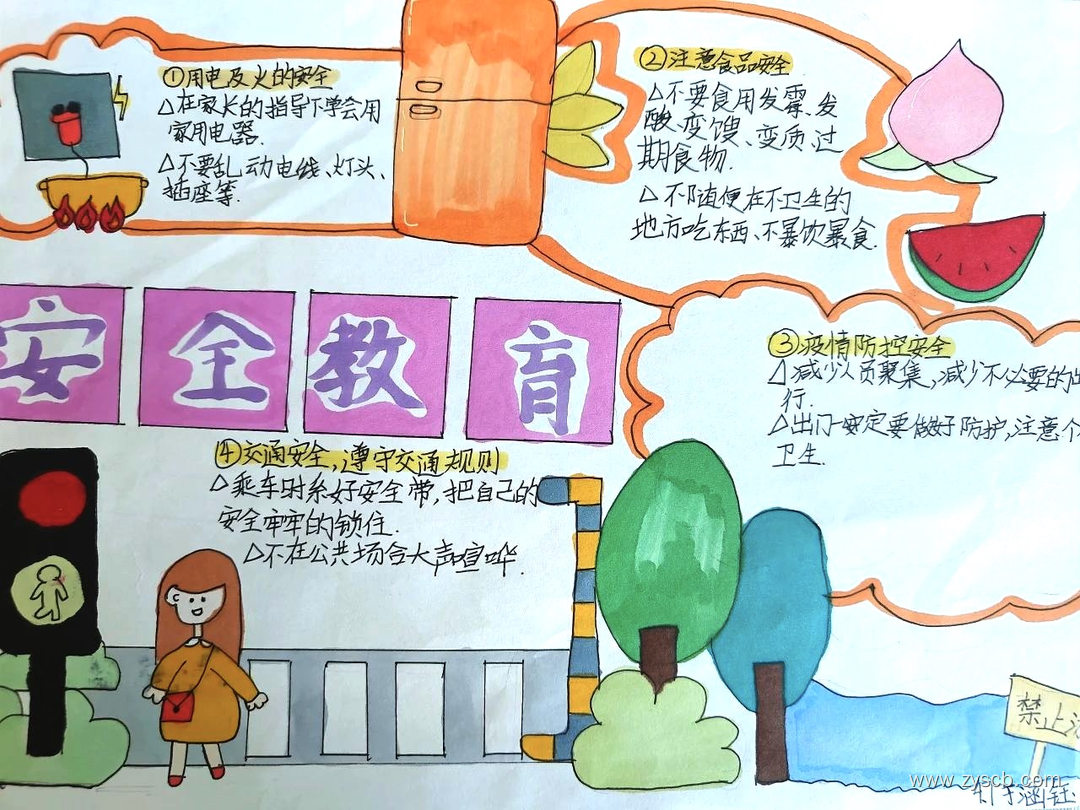 ①用电及火的安全
△在家长的指导下学会用
家用电器.
△不要乱动电线、灯头、
插座等.
②注意食品安全
△不要食用发霉、发
酸、变馊、变质、过
期食物.
△不随便在不卫生的
地方吃东西、不暴饮暴食.
安全教育
③疫情防控安全
△减少人员聚集,减少不必要的出
行.
△出门一定要做好防护,注意个
卫生.
④交通安全,遵守交通规则
△乘车时系好安全带,把自己的
安全牢牢的锁住.
△不在公共场合大声喧哗.
禁止
www.zyscb.com
涵钰